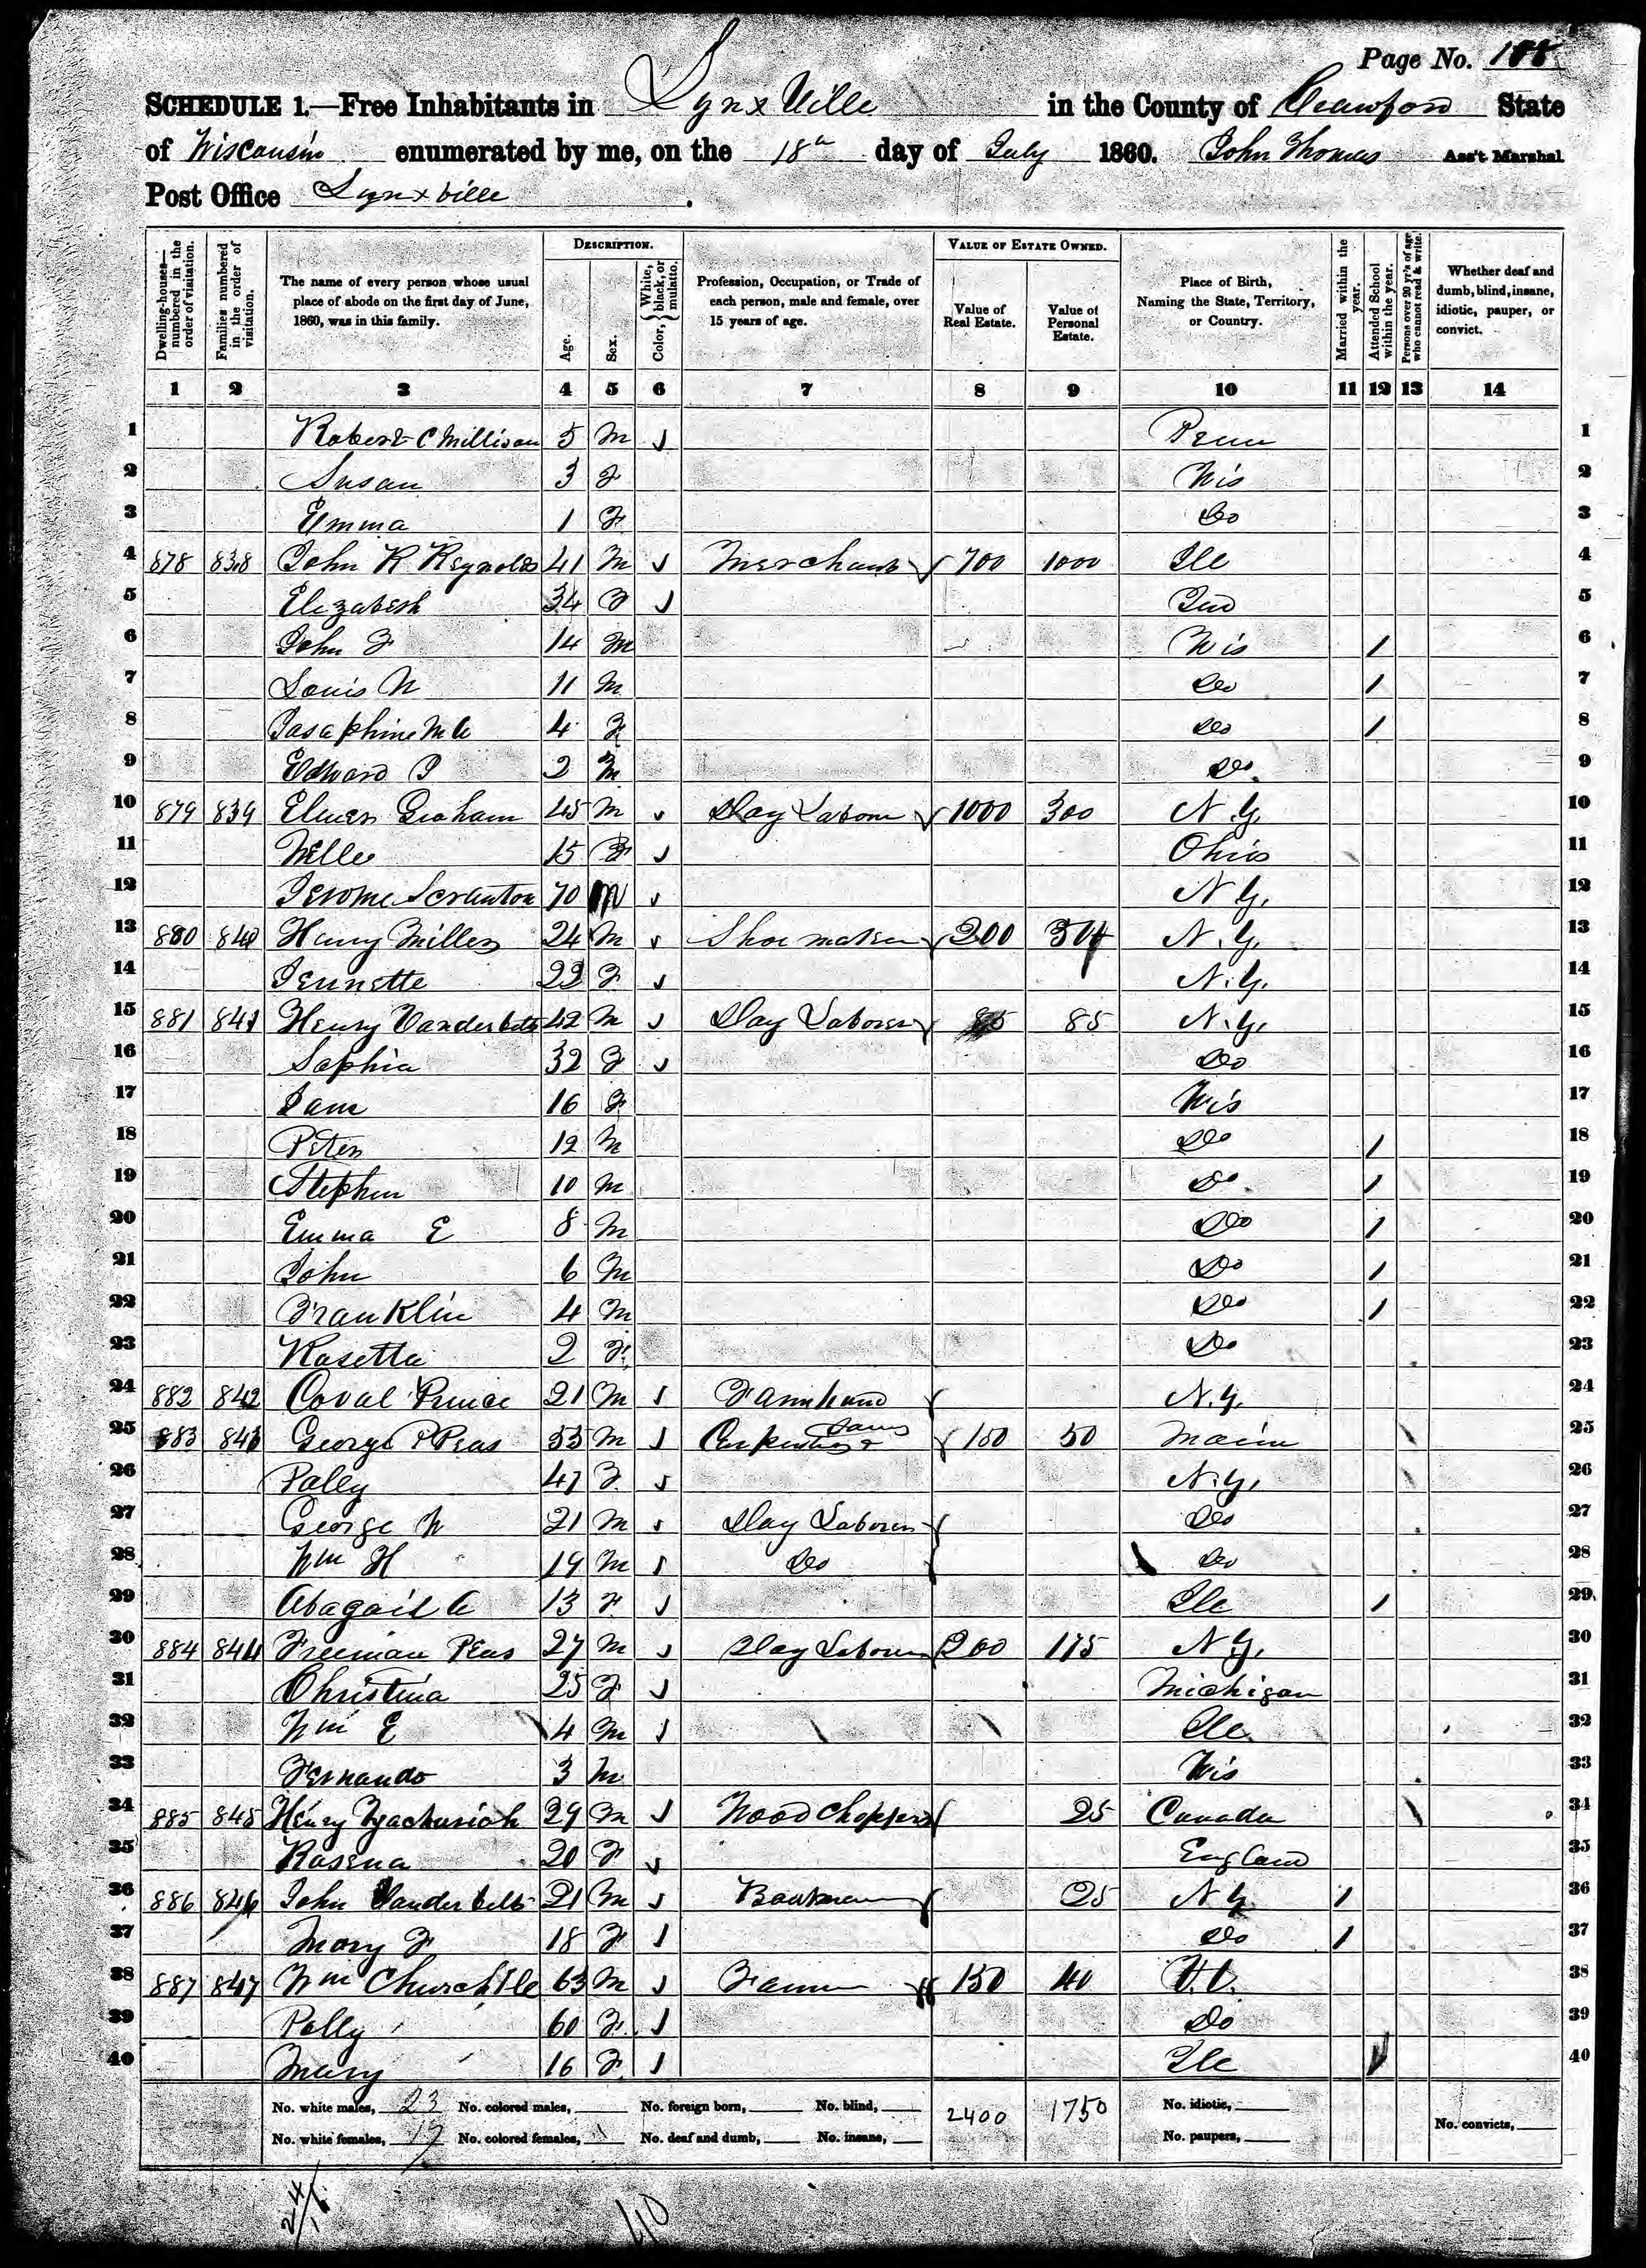 Page No. 188
SCHEDULE 1.—Free Inhabitants in Lynx Ville in the County of Crawford State
of Wisconsin enumerated by me, on the 18th day of July 1860. John Thomas Ass't Marshal
Post Office Lynxville .
Dwelling-houses—numbered in the order of visitation.
Families numbered in the order of visitation.
The name of every person whose usual place of abode on the first day of June, 1860, was in this family.
DESCRIPTION.
Age.
Sex.
Color, { White, black, or mulatto.
Profession, Occupation, or Trade of each person, male and female, over 15 years of age.
VALUE OF ESTATE OWNED.
Value of Real Estate.
Value of Personal Estate.
Place of Birth, Naming the State, Territory, or Country.
Married within the year.
Attended School within the year.
Persons over 20 yr's of age who cannot read & write.
Whether deaf and dumb, blind, insane, idiotic, pauper, or convict.
1 2 3 4 5 6 7 8 9 10 11 12 13 14
1 Robert C Millison 5 M Penn 1
2 Susan 3 F Wis 2
3 Emma 1 F Do 3
4 878 838 John R Reynolds 41 M Merchant 700 1000 Ill 4
5 Elizabeth 34 F Ind 5
6 John F 14 M Wis / 6
7 Louis N 11 M Do / 7
8 Josaphine M 4 F Do / 8
9 Edward J 2 M Do 9
10 879 839 Graham 45 M Day Labour 1000 300 N.Y. 10
11 15 F Ohio 11
12 Jerome Scranton 70 M N.Y. 12
13 880 840 Henry Miller 24 M Shoemaker 200 N.Y. 13
14 Jennette 22 F N.Y. 14
15 881 841 Henry Vanderbelt 42 M Day Laborer 85 N.Y. 15
16 Sophia 32 F Do 16
17 Jane 16 F Wis 17
18 Peter 12 M Do / 18
19 Stephen 10 M Do / 19
20 Emma E 8 M Do / 20
21 John 6 M Do / 21
22 Franklin 4 M Do / 22
23 Rosetta 2 F Do 23
24 882 842 Coval Prince 21 M Farmhand N.Y. 24
25 883 843 George P Peas 53 M Carpenter 150 50 Main 25
26 Polly 47 F N.Y. 26
27 George W 21 M Day Laborer Do 27
28 Wm H 19 M Do Do 28
29 Abagail A 13 F Ill / 29
30 884 844 Freeman Peas 27 M Day Laborer 200 175 N.Y. 30
31 Christina 25 F Michigan 31
32 Wm E 4 M Ill 32
33 Fernando 3 M Wis 33
34 885 845 Henry Zachariah 29 M Wood Chopper 25 Canada 34
35 Rosena 20 F England 35
36 886 846 John Vanderbelt 21 M Boatman 25 N.Y. / 36
37 Mary F 18 F Do / 37
38 887 847 Wm Churchill 63 M Farmer 150 40 38
39 Polly 60 F Do 39
40 Mary 16 F Ill / 40
No. white males, 23 No. colored males, No. foreign born, No. blind, 2400 1750 No. idiotic,
No. white females, 17 No. colored females, No. deaf and dumb, No. insane, No. paupers, No. convicts,
24/16
40